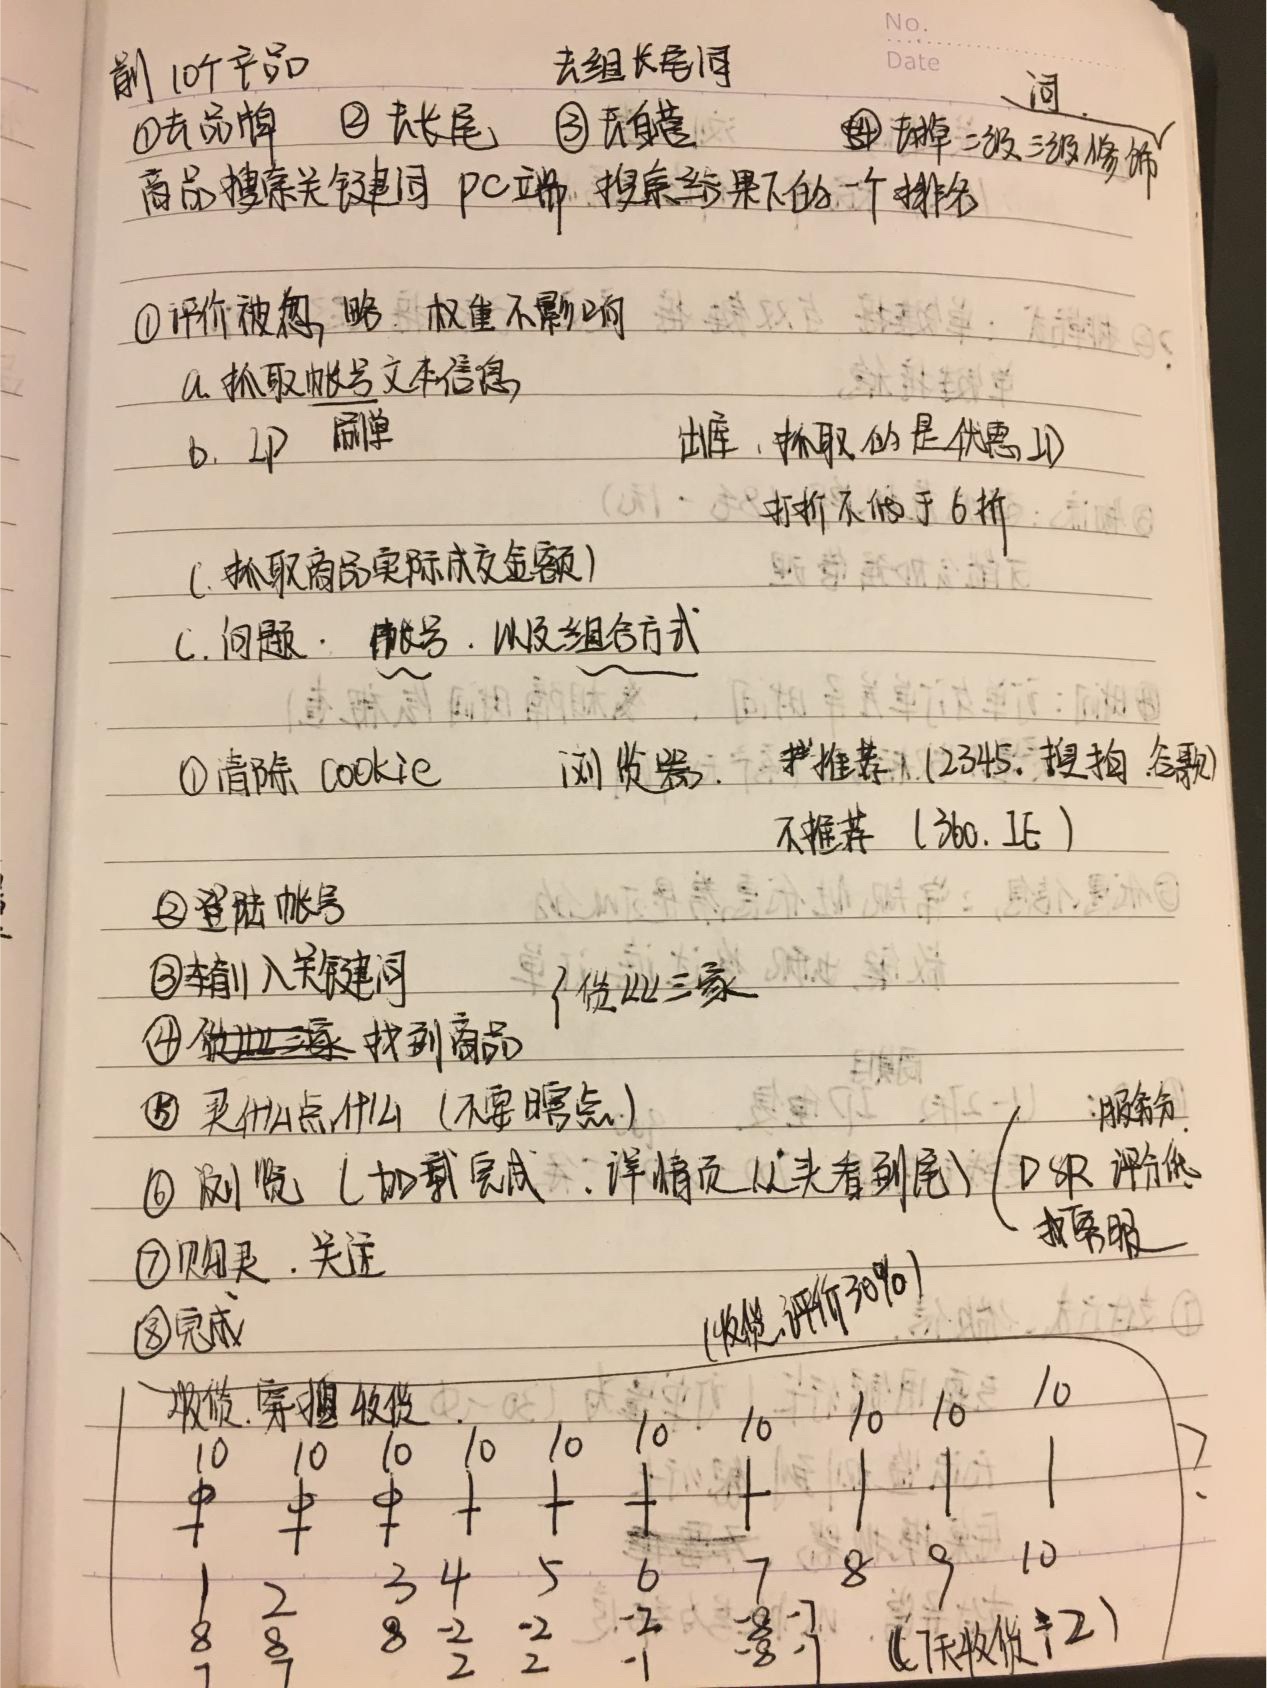 No.
Date
前10个产品 去组长尾词
①去品牌 ②去长尾 ③去自营 ④去掉二级三级修饰词
商品搜索关键词 PC端 搜索结果下的一个排名
①评价被忽略 权重不影响
a. 抓取帐号文本信息
刷单
b. IP 出库、抓取的是优惠ID
打折不低于6折
(. 抓取商品实际成交金额)
C. 问题. 帐号. 以及组合方式
①清除cookie 浏览器. 推荐 (2345. 搜狗. 谷歌)
不推荐 (360. IE)
②登陆帐号
③输入关键词
货比三家
④找到商品
⑤ 买什么点什么 (不要瞎点)
服务分
⑥ 浏览 (加载完成. 详情页从头看到尾) DSR 评分低
找客服
⑦购买. 关注
⑧完成
(收货.评价30%)
收货.穿插收货.
10 10 10 10 10 10 10 10 10 10
1 2 3 4 5 6 7 8 9 10
8 8 8 -2 -2 -2 -8 -7
7 7 2 2 -1 -8 -7 (7天收货 2)